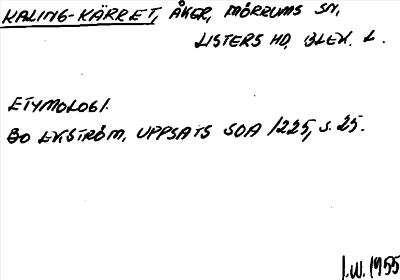 KALING-KÄRRET, ÅKER, MÖRRUMS SN,
LISTERS HD, BLEK. L.
ETYMOLOGI.
BO EKSTRÖM, UPPSATS SOA 1225, S. 25.
I.W. 1955